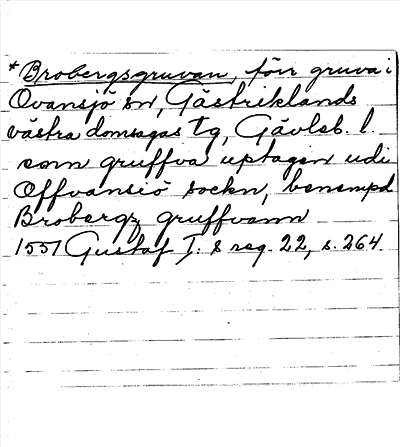 *Brobergsgruvan, förr gruva i
Ovansjö sn, Gästriklands
västra domsagas tg, Gävleb. l.
som gruffva uptagen udi
Offvansiö sockn, benempd
Brobergz gruffvann
1551 Gustaf I:s reg. 22, s. 264.